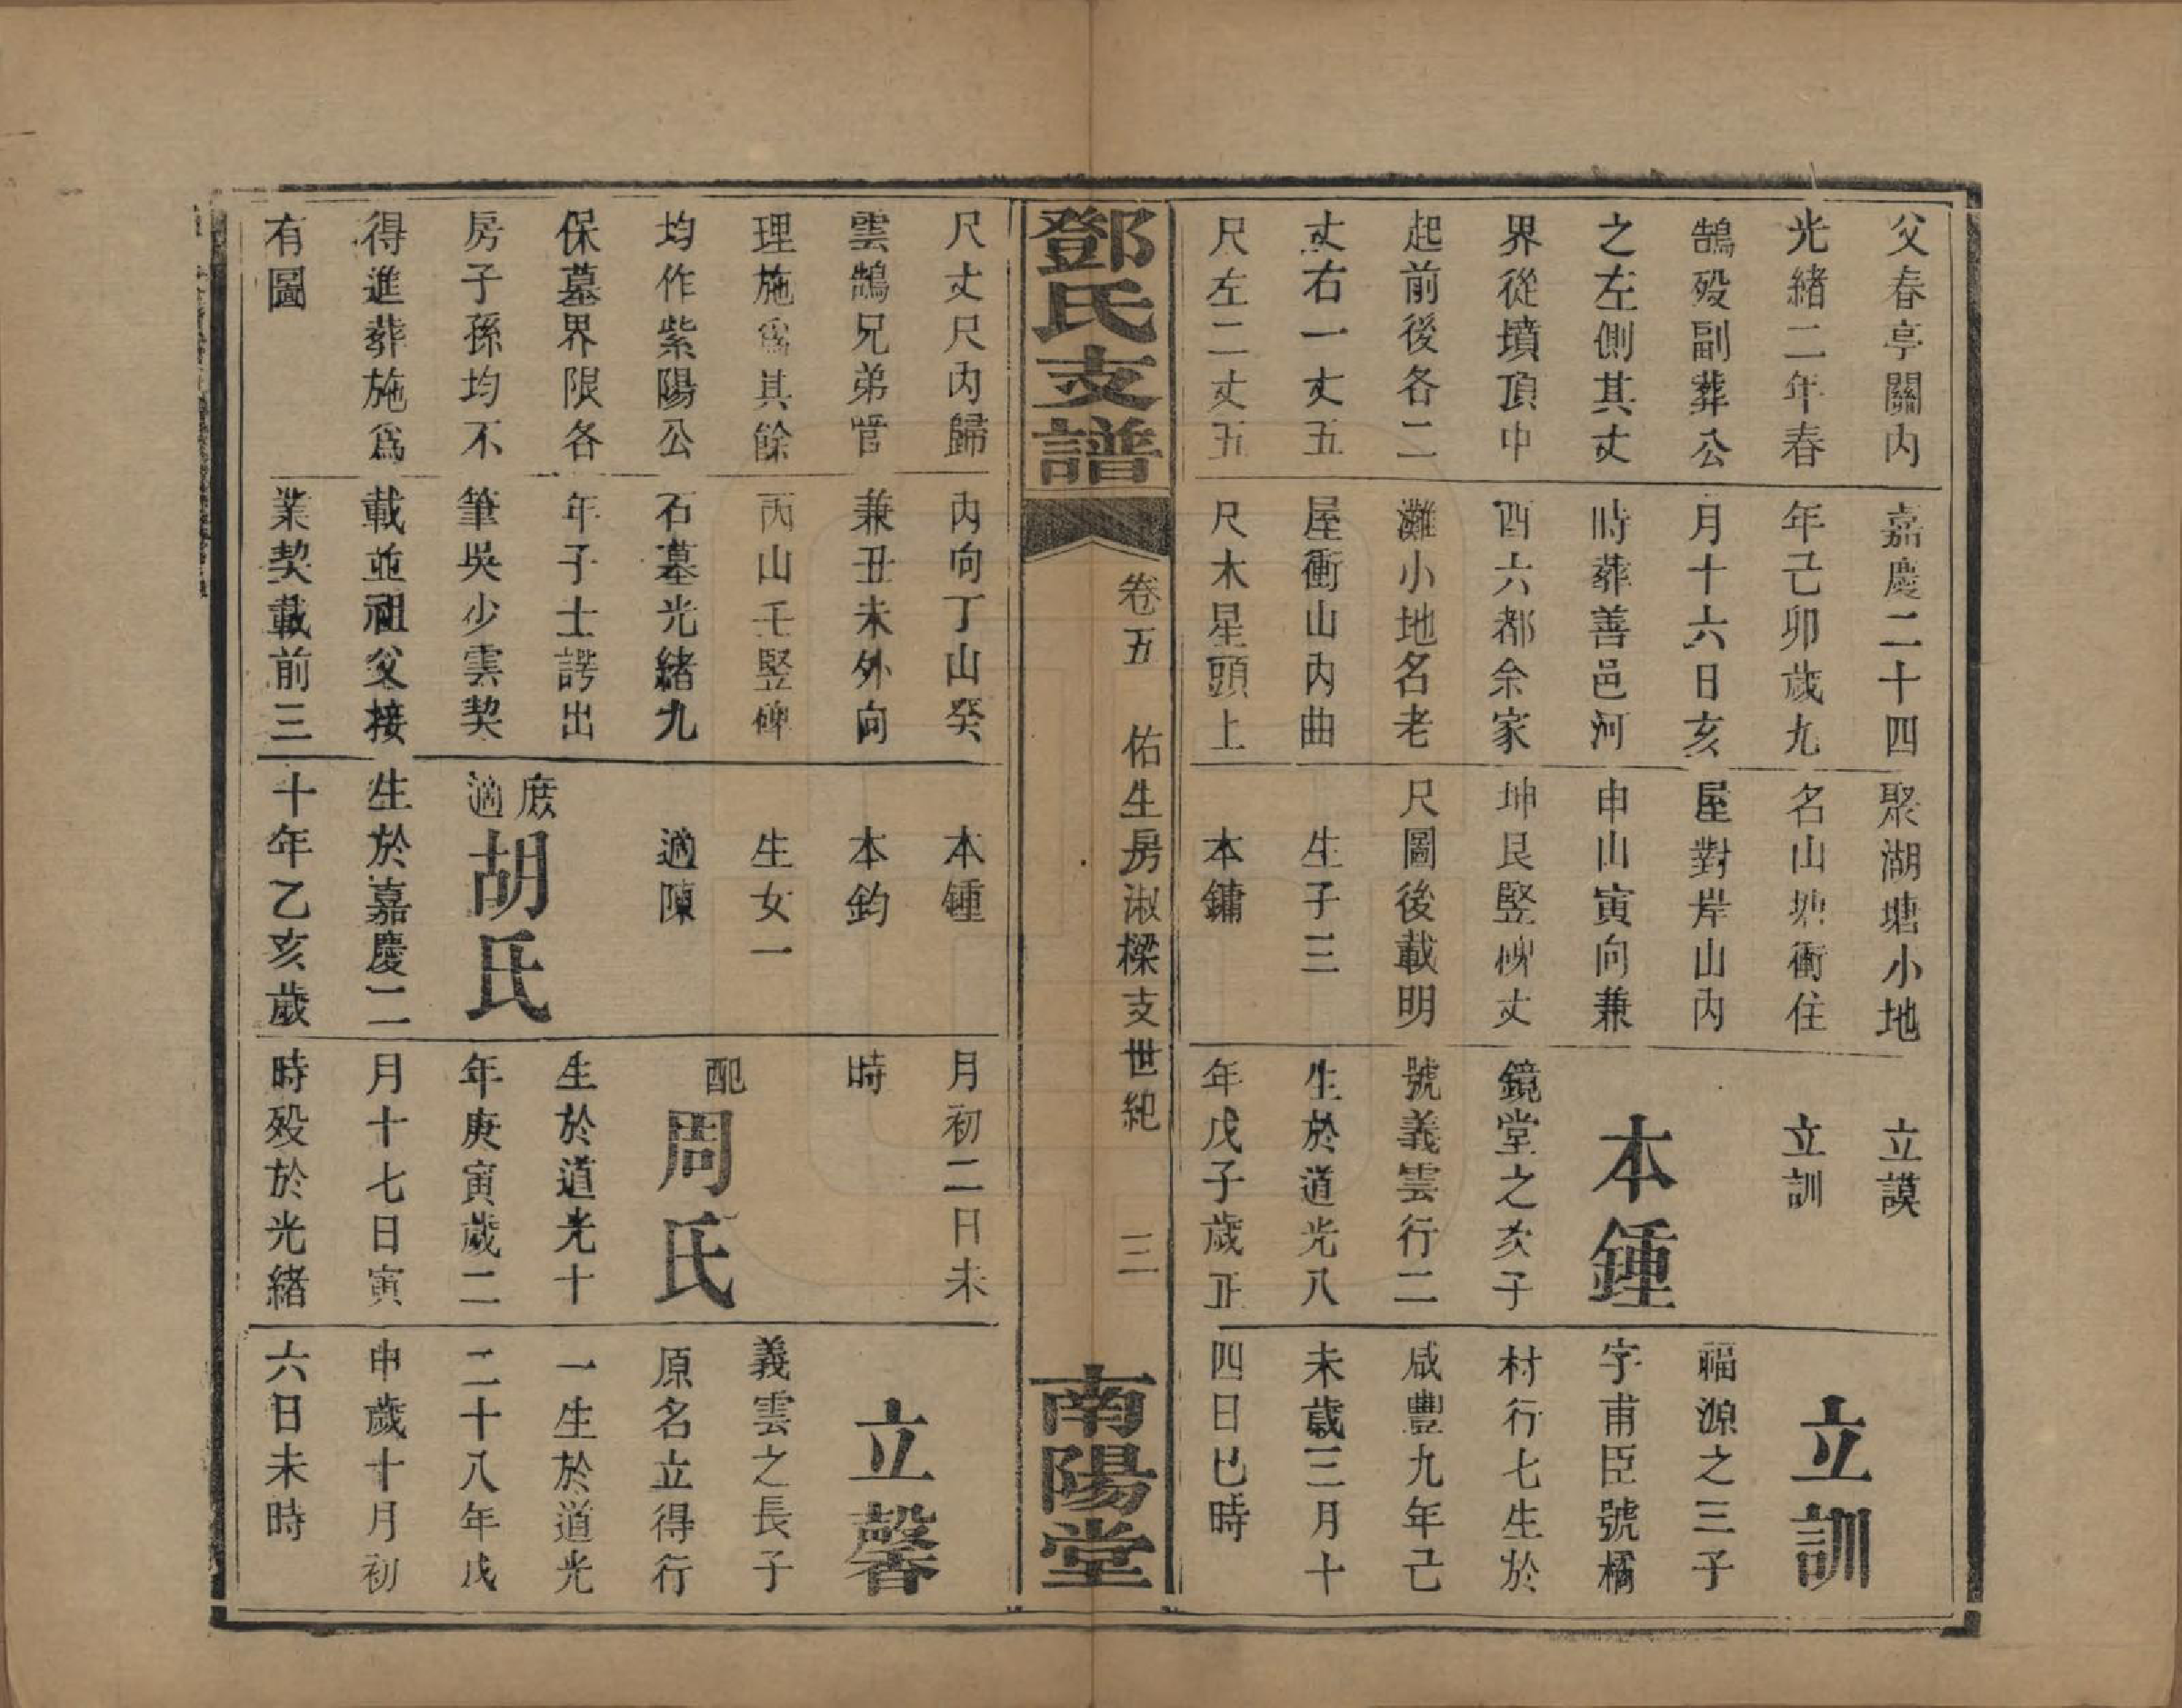 父春亭關内
光緒二年春
鵠殁副葬公
之左側其丈
界從墳頂中
起前後各二
丈右一丈五
尺左二丈五
嘉慶二十四
年己卯歲九
月十六日亥
時葬善邑河
西六都余家
灘小地名老
屋衝山内曲
尺木星頭上
聚湖塘小地
名山塘衝住
屋對岸山内
申山寅向兼
坤艮竪碑丈
尺圖後載明
生子三
本鏞
立謨
立訓
本鍾
鏡堂之次子
號義雲行二
生於道光八
年戊子歲正
立訓
福源之三子
字甫臣號橘
村行七生於
咸豐九年己
未歲三月十
四日巳時
鄧氏支譜
卷五 佑生房淑樑支世紀 三
南陽堂
尺丈尺内歸
雲鵠兄弟管
理施爲其餘
均作紫陽公
保墓界限各
房子孫均不
得進葬施爲
有圖
内向丁山癸
兼丑未外向
丙山壬竪碑
石墓光緒九
年子士諤出
筆吳少雲契
載並祖父接
業契載前三
本鍾
本鈞
生女一
適陳
庶適
胡氏
生於嘉慶二
十年乙亥歲
月初二日未
時
配
周氏
生於道光十
年庚寅歲二
月十七日寅
時殁於光緒
立馨
義雲之長子
原名立得行
一生於道光
二十八年戊
申歲十月初
六日未時